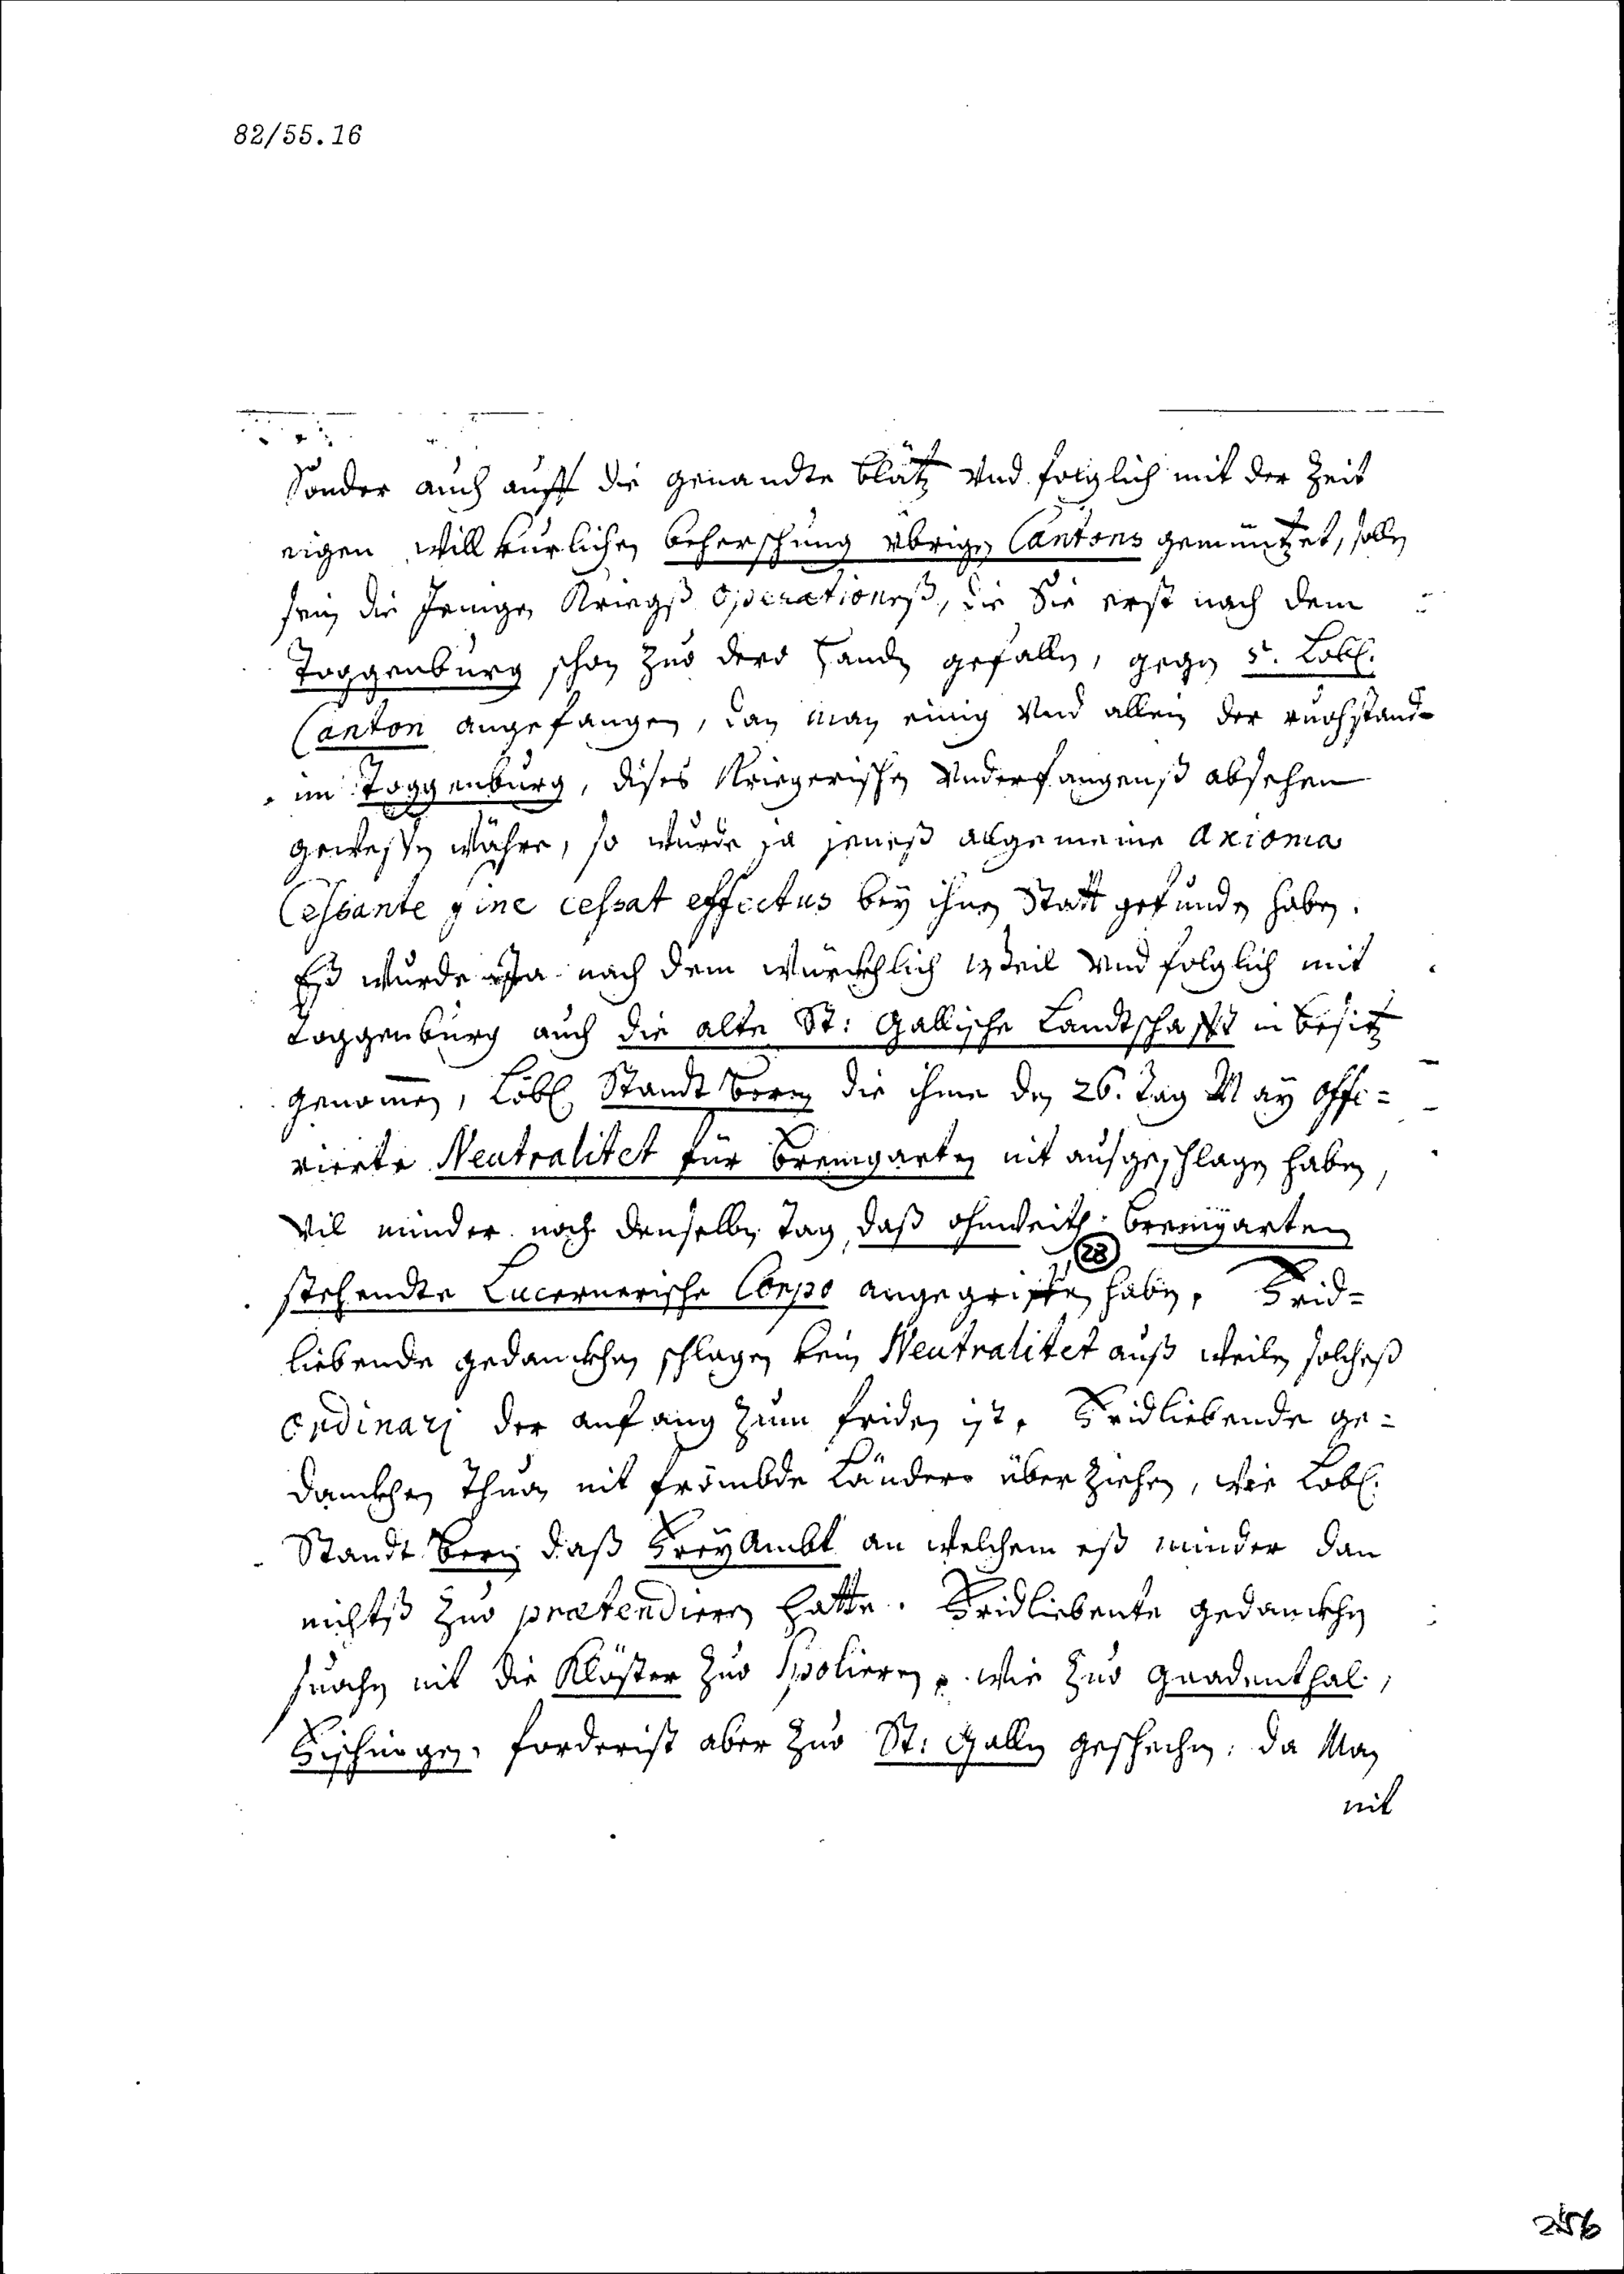 82/55.16
Sonder auch auff die genandte blätz Vnd folglich mit der Zeit
eigen willkurlichen beherschung übrigen Cantons gemüntzet, sollen
sein die Jenigen Kriegß operationeß, die Sie erst nach dem
Toggenburg schon zuo dero Handen gefallen, gegen 5. Lobl.
Canton angefangen, dan wan einig Vnd allein der ruohstand
im Toggenburg, dises Kriegerischen Vnderfangenß absehen
gewessen währe, so wurde ja jeneß allgemeine axioma
Cessante fine cessat effectus bey ihnen Statt gefunden haben.
Eß wurde Ja nach dem würckhlich Weil Vnd folglich mit
toggenburg auch die alte St: Gallische Landtschafft in besitz
genommen, Lobl. Standt bern die ihme den 26. tag May offe=
rierte Neutralitet für Bremgarten nit ausgeschlagen haben,
Vil minder noch denselben Tag, daß ohnweith bremgarten
stehendte Lucernerische Corpo angegriffen haben. Frid=
28
liebende gedanckhen schlagen kein Neutralitet auß weilen solcheß
ordinarj der anfang zum friden ist. Fridliebende ge=
danckhen Thuon nit frömbde Länder überziehen, wie Lobl.
Standt bern daß FreyAmbt an welchem eß minder dan
nichtß zuo prætendieren hatte. Fridliebente gedanckhen
suochen nit die Klöster zuo Spolieren, wie zuo gnadenthal,
Fischingen, forderist aber zuo St: Gallen geschechen, da Man
nit
256